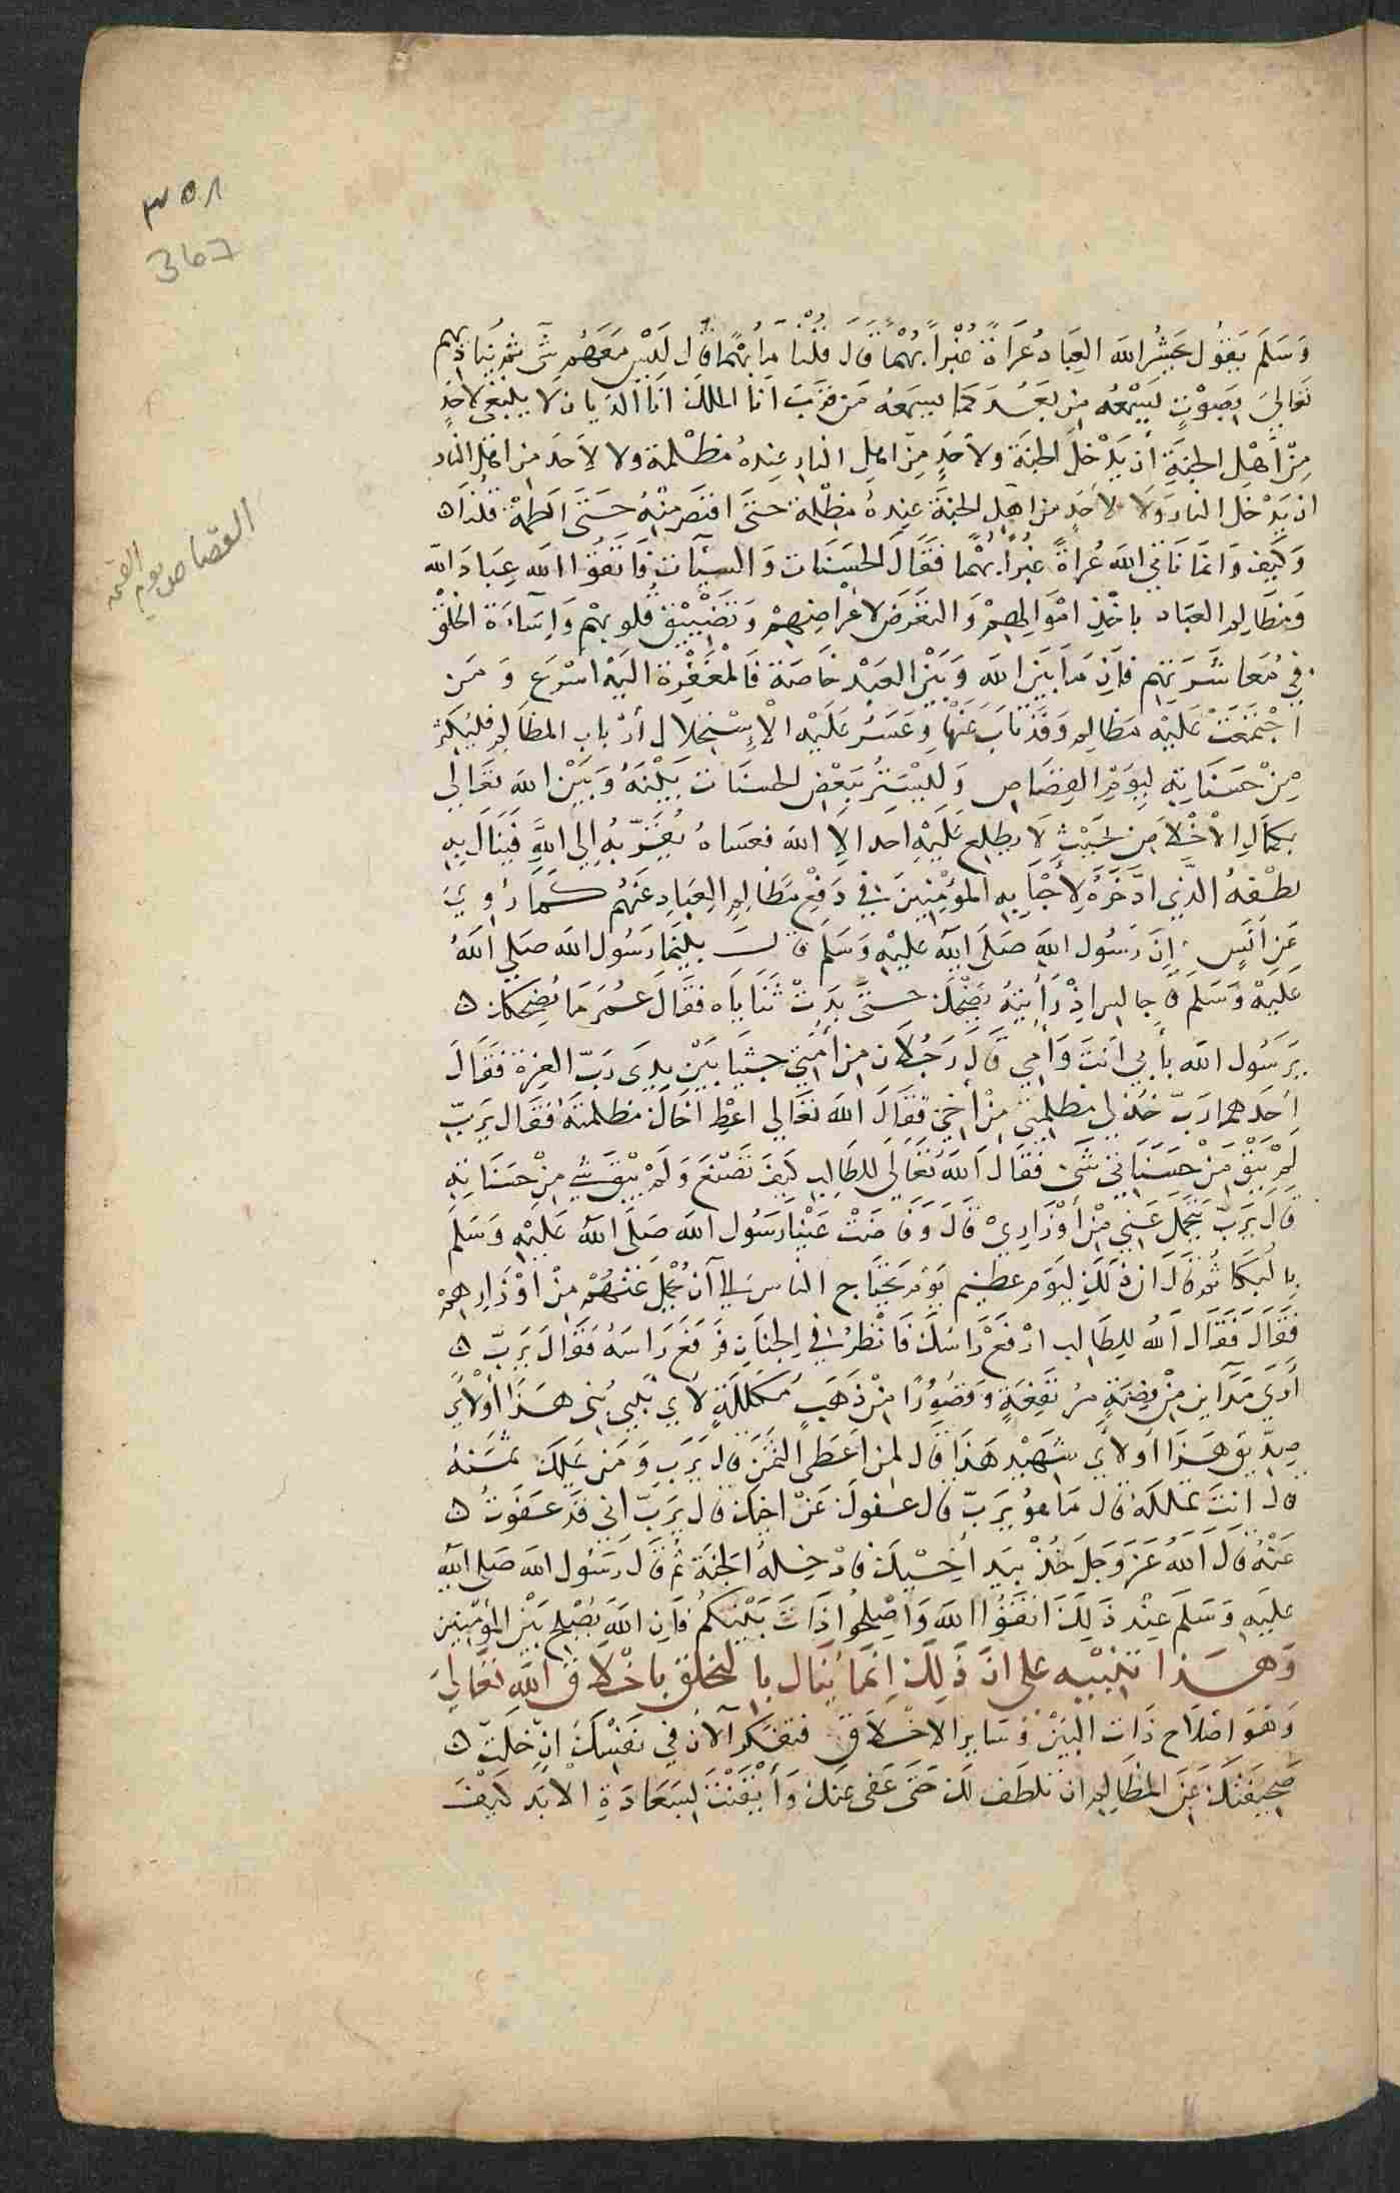 ٣٥٨
367
القصاص يوم
القيمة
وَسَلَّمَ يَقُول يحشُر اللَه العِبَاد عُرَاةً غُبْرًا بُهْمًا قَالَ قُلْنَا مَا بُهْمًا قال لَيْسَ مَعَهُم شَيٌ ثم يُنَاديهم
تَعَالي بِصَوْتٍ يَسْمعُه من بَعُدَ كَمَا يسمَعه مَن قرُبَ أنَا الملك أنَا الدَيان لَا ينبَغي لاحَدٍ
مِنْ أهْلِ الجنةِ أن يَدْخلَ الجنَة ولاحَدٍ مِنْ اهلِ النار عِندهُ مظلمة ولا لاَحَد من اهل النار
ان يَدْخل النار وَلَا لاحَدٍ من اهل الجنة عِندهُ مظلمة حتَى اقتصَ منْهُ حَتَى اللطمة قلنا ه
وَكيف وَانمَا نَاتي اللَه عُراةً غُبْرًا بُهْمًا فقَالَ الحسَنَات وَالسيئات فَاتقوُا اللَه عِبَادَ اللَه
وَمظَالِم العبَاد باخْذِ امْوَالِهمْ وَالتَعَرض لاعْرَاضِهِمْ وَتَضْيِيْق قلوبهم وَإسَاءَة الخلق
في مُعَاشَرَتهم فاِن مَا بَينَ اللَه وَبَيْنَ العَبْد خَاصة فَالمْغفِرة اليْه اسْرَع وَمَن
اجْتَمَعَتْ عَلَيْه مَظالم وَقَد تَابَ عَنْهَا وَعَسُرَ عَلَيْه الْاِسْتِحلال أرْبَاب المظَالم فليكثر
مِنْ حَسَنَاتِهِ لِيَوْمِ القِصَاص وَلْيُسِّرْ بَعْض الحسَنات بَيْنَهُ وَبَيْن اللهِ تعَالي
بكمَالِ الْاخْلَاصِ بحَيْثُ لَا يطلِع عَلَيْهِ احَد الاَ اللَه فعسَاهُ يُقَرِّبُهُ إلي اللهِ فَيَنَال بهِ
لطْفهُ الّذي ادّخَرَهُ لِاَحْبَابِهِ المؤمِنِينَ في دَفْعِ مَظَالِم العِبَادِ عَنْهُم كَمَا رُوِيَ
عَن أنَس إنَ رَسُول اللَه صَلَى اللَه عليْهِ وَسَلَم قالَ بَيْنَمَا رَسُول اللَه صَلي اللَهُ
عَلَيْهْ وَسَلَمَ جالس اذْ رَأيتهُ يَضْحَك حتىَ بَدَتْ ثَنَايَاه فقالَ عُمَر مَا يُضْحِكك ه
يَرسُول اللَه بأبي أنتَ وَأمي قَالَ رَجُلَان من أمتي جثيَا بَيْن يدي رَبّ العِزة فقَالَ
أحَدهما رَبّ خُذ لي مظلمتي منْ أخي فقالَ اللَه تعَالي اعْطِ أخَاك مظلمتَه فقال يَرَبّ
لَمْ يَبْقَ مِنْ حسَنَاتي شَي فقال اللَه تَعَالَي للطَالِب كَيْفَ تَصْنَع وَلَمْ يبْقَ شي مِنْ حَسَنَاتِهِ
قالَ يَرَبّ يَتحَمَل عَنِي مْن أوْزَارِيْ قَالَ وَفَاضَتْ عَيْنا رَسُول اللَه صَلَى اللَه عَلَيْه وَسَلَمَ
بالبُكَا ثم قالَ ان ذلك لَيَوْم عظيم يَوْم يَحتَاج الناس إلي أن يُحْمَل عَنْهُم مِنْ اوْزَارِهمْ
فَقَالَ فَقَالَ اللَه للِطَالِب ارْفعْ رَاسَك فَانْظر في الجِنَان فَرَفعَ رَاسَه فقَالَ يَرَبّ ه
أرَي مَدَاين مِنْ فِضَةٍ مُرْتَفِعَةٍ وَقصُورًا مِنْ ذَهَبٍ مُكَلّلَةٍ لِأي نَبِي بُنِي هَذَا أوْلِأي
صِدّيق هَذَا أولاي شهَيْد هَذَا قالَ لمن اعَطَى الثمنَ قالَ يَرَب وَمَن يَملك ثَمَنَهُ
قالَ أنتَ تملكَهُ قالَ مَا هو يَرَبّ قال عفوك عَنْ اخيك قال يَرَبّ اني قَد عَفَوتُ ه
عَنْهُ قالَ اَللَه عَزّ وَجَلَ خُذْ بيَد أخِيْكَ فادْخِلهُ الجَنَة ثُم قَالَ رَسُول اللَه صَلى اللَه
عليَهِ وَسَلمَ عنْد ذلِكَ اتقَوُا اللَه وَاصْلِحُوا ذَاتَ بَيْنكمُ فَاِن اللَهَ يُصْلِح بَيْن المؤمِنين
وَهَذا تنْبِيْه على انَ ذلِكَ إنمَا يُنَال بِالتخَلق باخْلَاق اللَه تعَاليَ
وَهوَ اصْلاح ذَات البَيْن وَسَاير الاخْلَاق فتفَكر الآن في نَفْسكَ ان خَلَتْ ه
صَحِيفَتُكَ عَن المظَالِم ان تلطَف لك حَتى عَفى عَنك وَأيْقَنْتَ بسَعَادَةِ الْابَد كَيْفَ